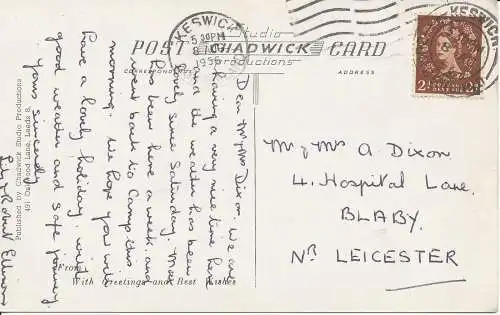 Studio
POST CHADWICK CARD
Productions
CORRESPONDENCE
ADDRESS
KESWICK
5 30PM
1956
KESWICK
2½D 2½D
Dear Mr & Mrs Dixon. We are
having a very nice time here
and the weather has been
lovely since Saturday. Max
has been here a week and
went back to Camp this
morning. We hope you will
have a lovely holiday with
good weather and safe journey.
Yours sincerely
Robert
Mr & Mrs A Dixon
4. Hospital Lane.
BLABY.
Nr LEICESTER
From
With Greetings and Best Wishes
Published by Chadwick Studio Productions
Lane, Leeds 8.